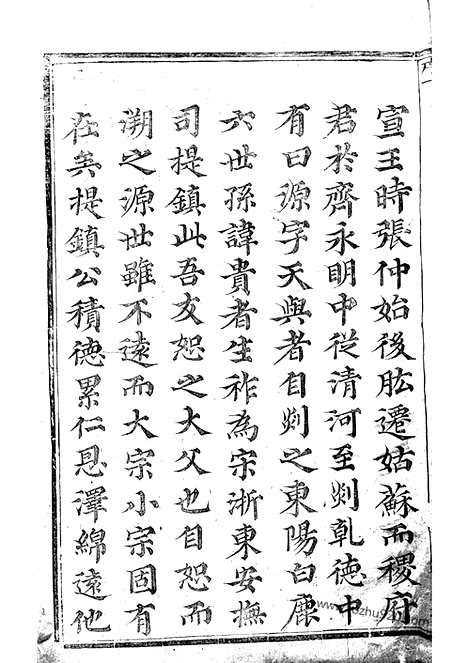 宣王時張仲始後肱遷姑蘇而稷府
君於齊永明中從清河至剡乹德中
有曰源字天與者自剡之東陽白鹿
六世孫諱貴者生祚為宗浙東安撫
司提鎮此吾友恕之大父也自恕而
溯之源世雖不遠而大宗小宗固有
在矣提鎮公積德累仁恩澤綿遠他